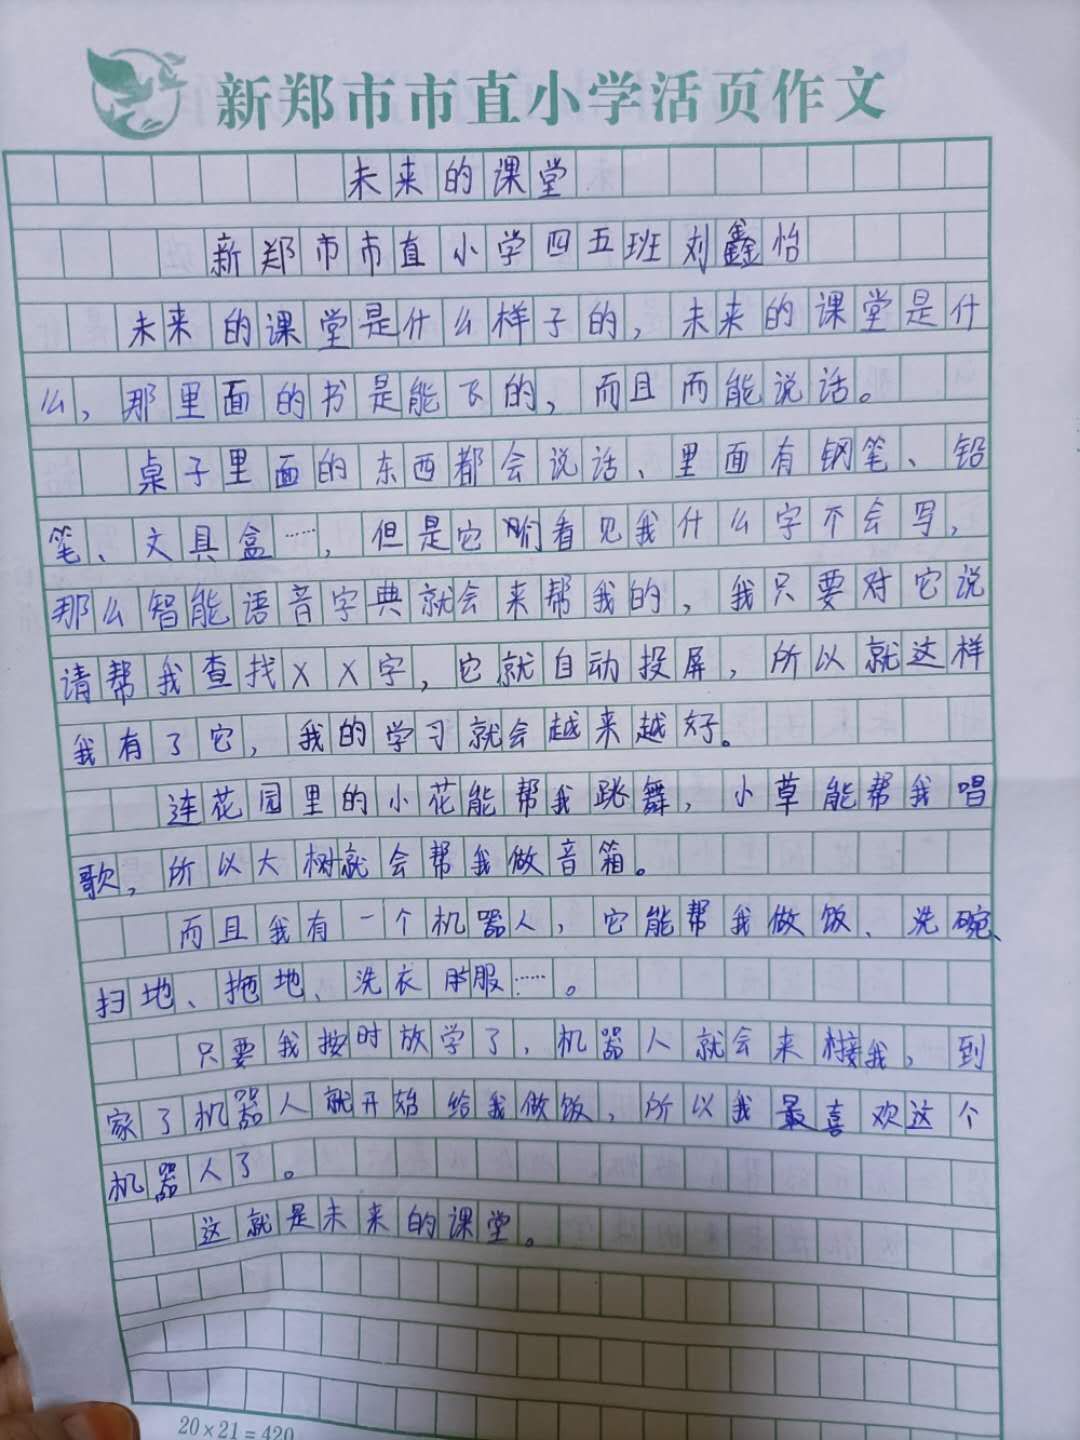 新郑市市直小学活页作文
未来的课堂
新郑市市直小学四五班刘鑫怡
未来的课堂是什么样子的，未来的课堂是什
么，那里面的书是能飞的，而且而能说话。
桌子里面的东西都会说话、里面有钢笔、铅
笔、文具盒……，但是它们看见我什么字不会写，
那么智能语音字典就会来帮我的，我只要对它说
请帮我查找XX字，它就自动投屏，所以就这样
我有了它，我的学习就会越来越好。
连花园里的小花能帮我跳舞，小草能帮我唱
歌，所以大树就会帮我做音箱。
而且我有一个机器人，它能帮我做饭、洗碗、
扫地、拖地、洗衣服……。
只要我按时放学了，机器人就会来接我，到
家了机器人就开始给我做饭，所以我最喜欢这个
机器人了。
这就是未来的课堂。
20×21=420